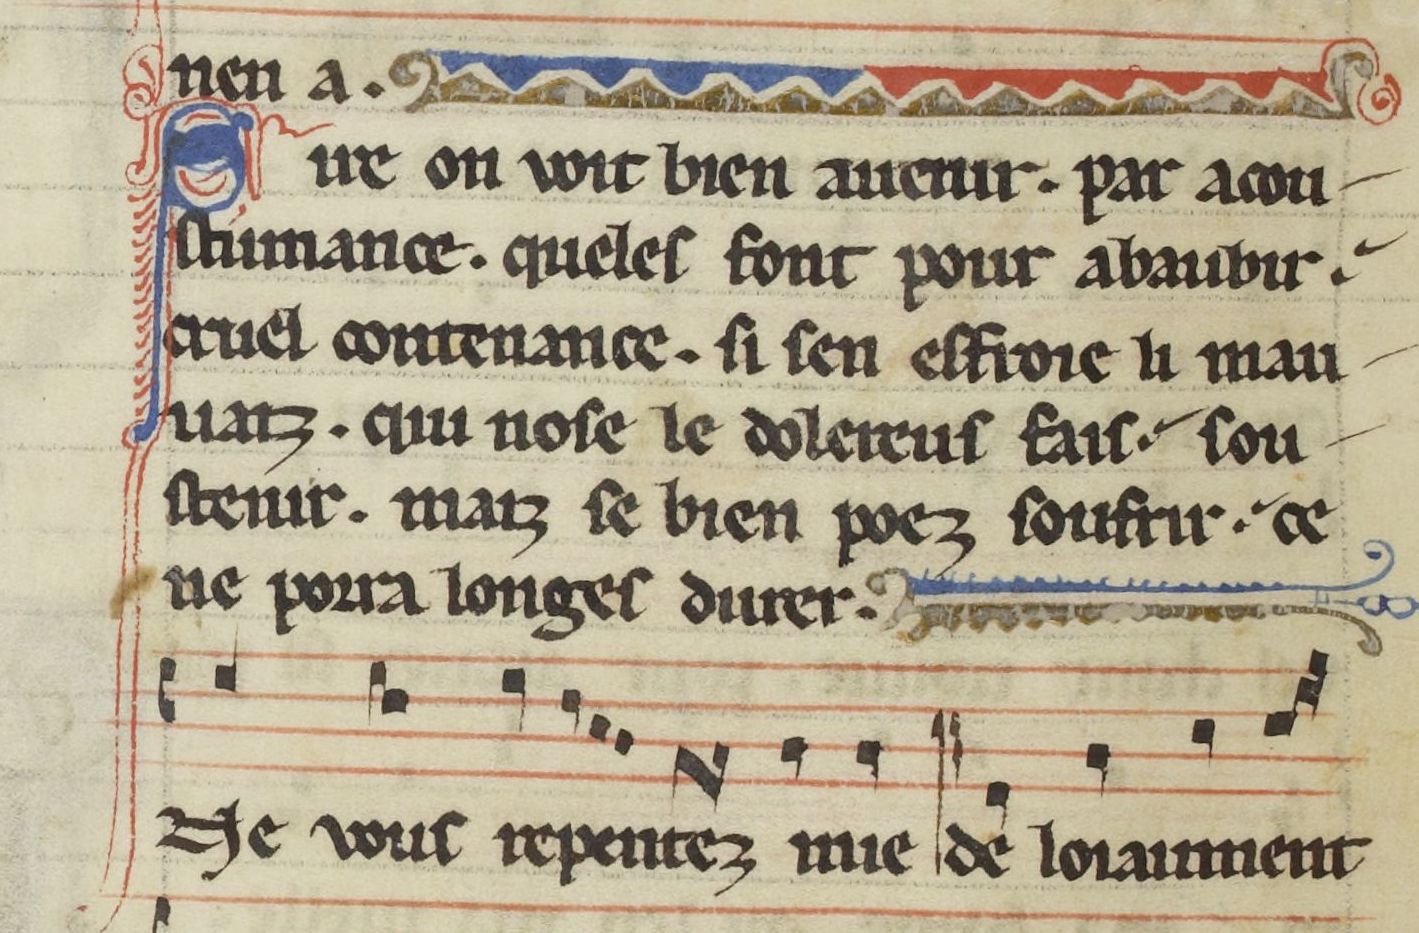 nen a.
Pure on voit bien auenir. par acou
stumance. queles font pour abaubir.
cruel contenance. si sen esfroie li mau
uaiz. qui nose le dolereus fais. sou
stenir. maiz se bien poez soufrir. ce
ne porra longes durer.
Ne vous repentez mie de loiaument